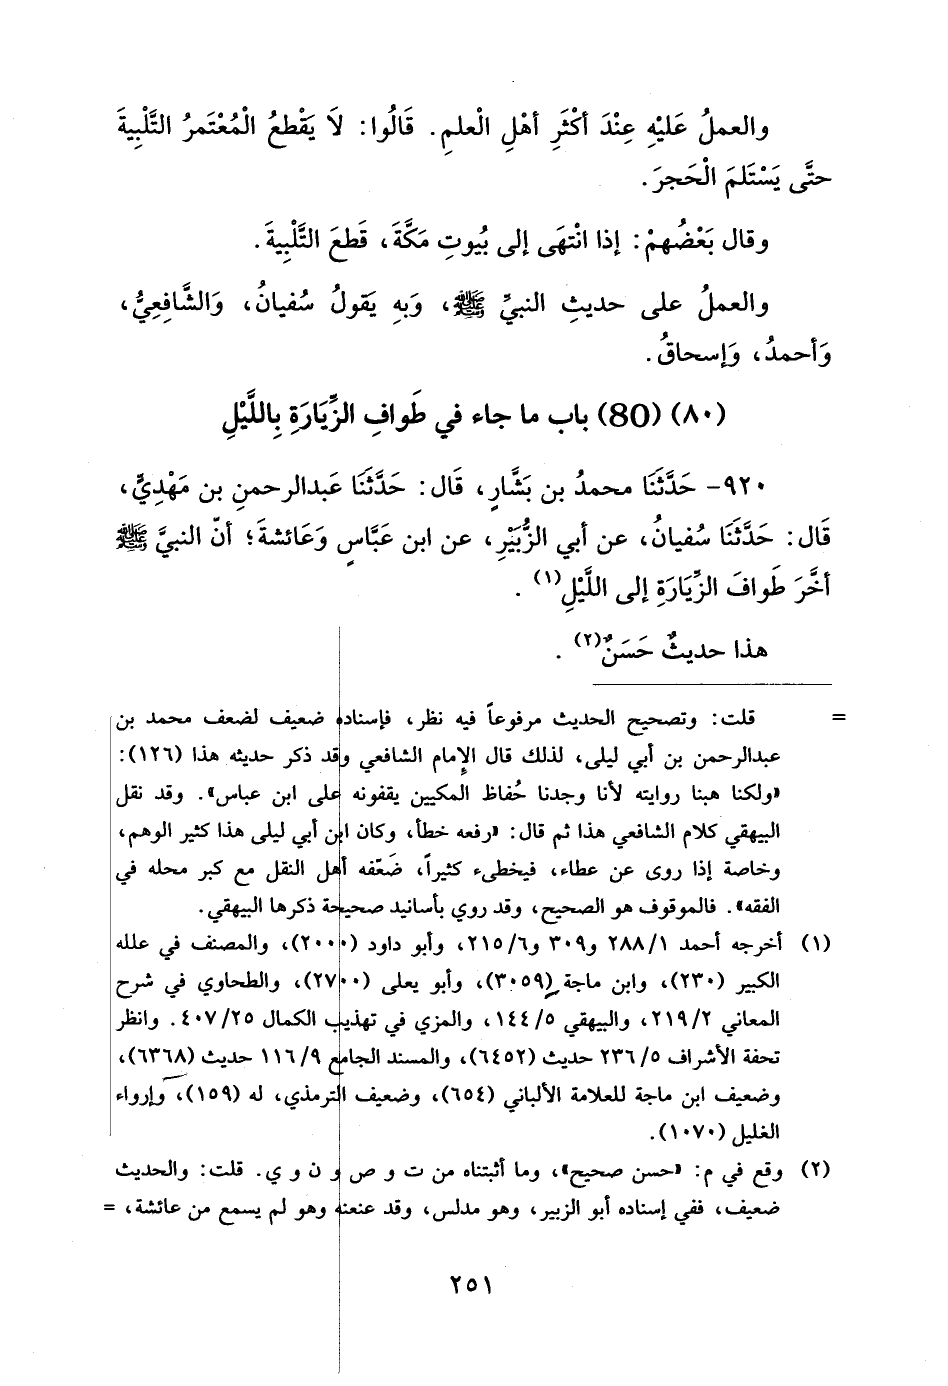 والعملُ عَلَيْهِ عِنْدَ أكْثَرِ أهْلِ الْعلمِ. قَالُوا: لاَ يَقْطعُ الْمُعْتَمرُ التَّلْبِيةَ
حتَّى يَسْتَلمَ الْحَجرَ.
وقال بَعْضُهمْ: إذا انْتهَى إلى بُيوتِ مَكَّةَ، قَطعَ التَّلْبِيةَ.
والعملُ على حديثِ النبيِّ ﷺ، وَبهِ يَقولُ سُفيانُ، وَالشَّافِعِيُّ،
وَأحمدُ، وَإسحاقُ.
(٨٠) (80) باب ما جاء في طَوافِ الزِّيَارَةِ بِاللَّيْلِ
٩٢٠- حَدَّثَنَا محمدُ بن بَشَّارٍ، قَال: حَدَّثَنَا عَبدالرحمنِ بن مَهْدِيٍّ،
قَال: حَدَّثَنَا سُفيانُ، عن أبي الزُّبَيْرِ، عن ابن عَبَّاسٍ وَعَائشةَ؛ أنّ النبيَّ ﷺ
أخَّرَ طَوافَ الزِّيَارَةِ إلى اللَّيْلِ(١).
هذا حديثٌ حَسَنٌ(٢).
= قلت: وتصحيح الحديث مرفوعاً فيه نظر، فإسناده ضعيف لضعف محمد بن
عبدالرحمن بن أبي ليلى، لذلك قال الإمام الشافعي وقد ذكر حديثه هذا (١٢٦):
«ولكنا هبنا روايته لأنا وجدنا حُفاظ المكيين يقفونه على ابن عباس». وقد نقل
البيهقي كلام الشافعي هذا ثم قال: «رفعه خطأ، وكان ابن أبي ليلى هذا كثير الوهم،
وخاصة إذا روى عن عطاء، فيخطىء كثيراً، ضَعّفه أهل النقل مع كبر محله في
الفقه». فالموقوف هو الصحيح، وقد روي بأسانيد صحيحة ذكرها البيهقي.
(١) أخرجه أحمد ١/ ٢٨٨ و٣٠٩ و٦/ ٢١٥، وأبو داود (٢٠٠٠)، والمصنف في علله
الكبير (٢٣٠)، وابن ماجة (٣٠٥٩)، وأبو يعلى (٢٧٠٠)، والطحاوي في شرح
المعاني ٢/ ٢١٩، والبيهقي ٥/ ١٤٤، والمزي في تهذيب الكمال ٢٥/ ٤٠٧. وانظر
تحفة الأشراف ٥/ ٢٣٦ حديث (٦٤٥٢)، والمسند الجامع ٩/ ١١٦ حديث (٦٣٦٨)،
وضعيف ابن ماجة للعلامة الألباني (٦٥٤)، وضعيف الترمذي، له (١٥٩)، وإرواء
الغليل (١٠٧٠).
(٢) وقع في م: «حسن صحيح»، وما أثبتناه من ت و ص و ن و ي. قلت: والحديث
ضعيف، ففي إسناده أبو الزبير، وهو مدلس، وقد عنعنه وهو لم يسمع من عائشة، =
٢٥١